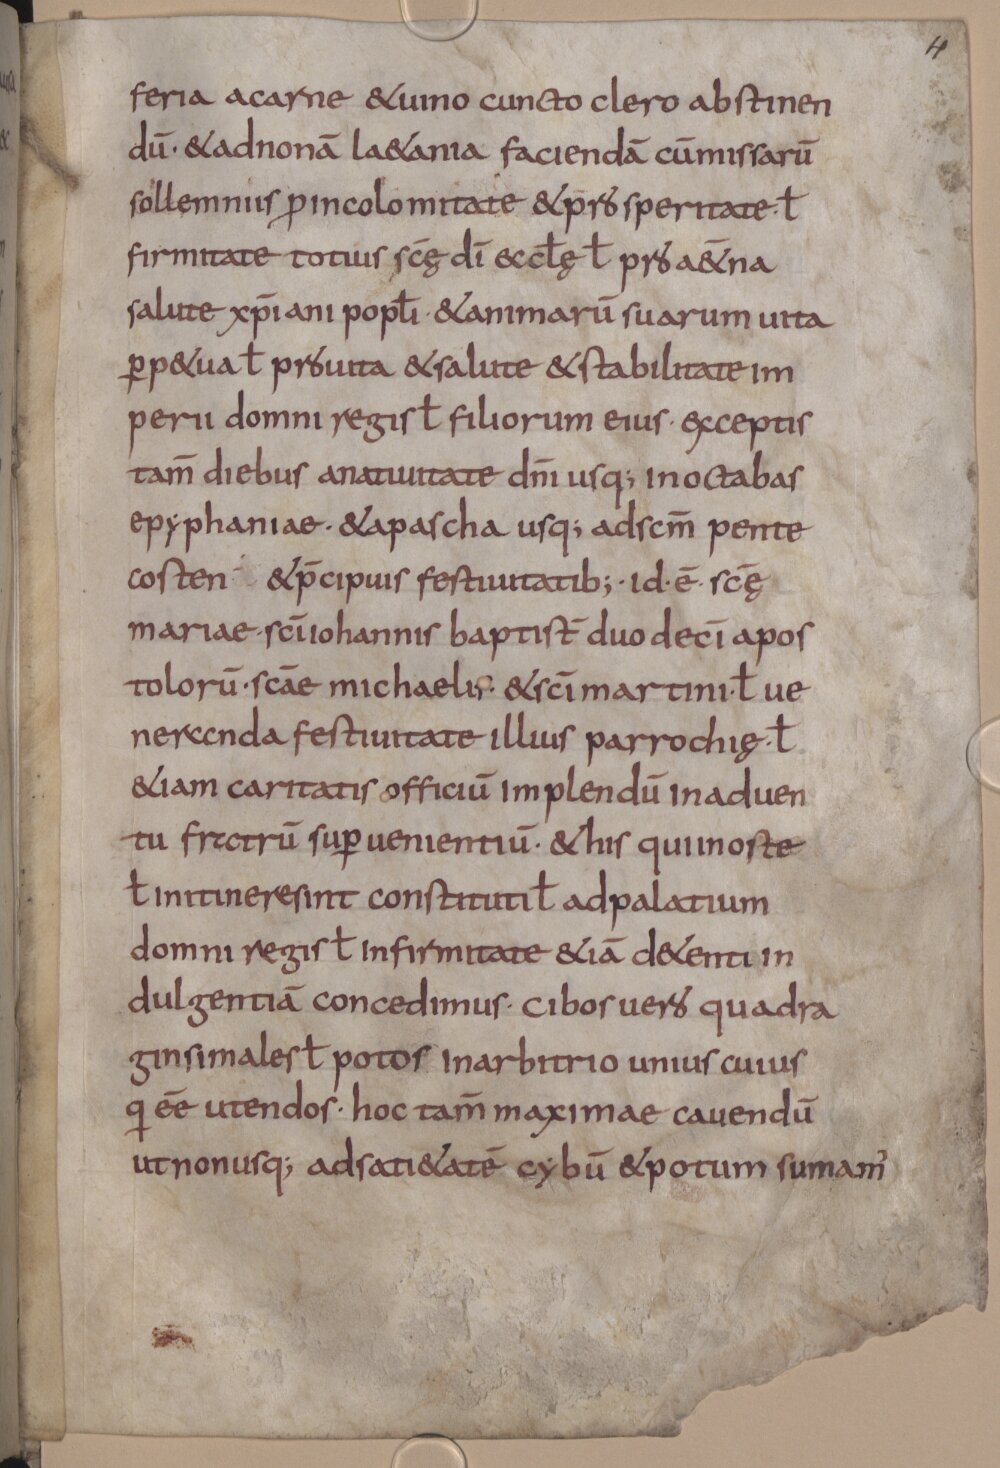 4
feria acarne &uino cuncto clero abstinen
dū · &adnonā la&ania faciendā cūmissarū
sollemniis ꝑincolomitate &p̄rosperitate · ł
firmitate totius scę̄ dī eccłę ł pro a&̄na
salute xp̄iani popłi · &animarū suarum uita
ꝑp&ua ł pro uita &salute &stabilitate im
perii domni regis ł filiorum eius · exceptis
tam̄ diebus anatiuitate dn̄i usq; inoctabas
epyphaniae · &apascha usq; adscm̄ pente
costen &p̄cipuis festiuitatib; · id · ē · scę̄
mariae · scī iohannis baptist̄ duodecī apos
tolorū · scāe michaelis · &scī martini · ł ue
neranda festiuitate illius parrochię · ł
&iam caritatis officiū implendū inaduen
tu fratrū suꝑuenientiū · &his quiinoste
ł initineresint constituti ł adpalatium
domni regis ł infirmitate &iā d&enti in
dulgentiā concedimus · cibos uero quadra
ginsimales ł potos inarbitrio unius cuius
q eē̄ utendos · hoc tam̄ maximae cauendū
utnonusq; adsati&atē cybū &potum sumam᷒